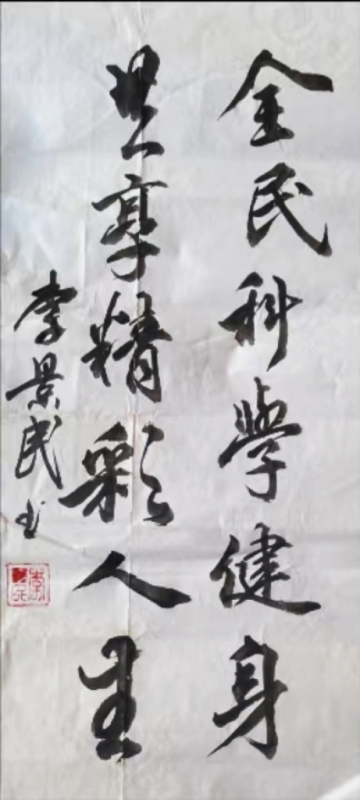 全民科學健身
共享精彩人生
李景民书